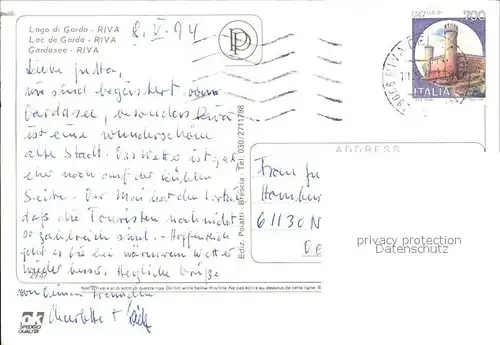 Lago di Garda - RIVA
Lac de Garda - RIVA
Gardasee - RIVA
8. V. 94
PP
CASTELLO DI
700
ITALIA
38066 RIVA
Liebe Jutta,
wir sind begeistert vom
Gardasee, besonders Riva
ist eine wunderschöne
alte Stadt. Das Wetter ist gut
eher noch auf der kühlen
Seite. Der Mai hat den Vorteil
daß die Touristen noch nicht
so zahlreich sind. - Hoffentlich
geht es Dir bei warmem Wetter
wieder besser. Herzliche Grüße
von Deinen Freunden
Charlotte +
Ediz. Poiatti - Brescia - Tel. 030/2711798
ADDRESS
Frau Ju
Hombur
61130 N
DE
privacy protection
Datenschutz
2947
Non scrivere al di sotto di questa riga. Do not write below this line. Ne pas écrire au dessous de cette ligne.
OK
SPEDISCI
QUALITÀ